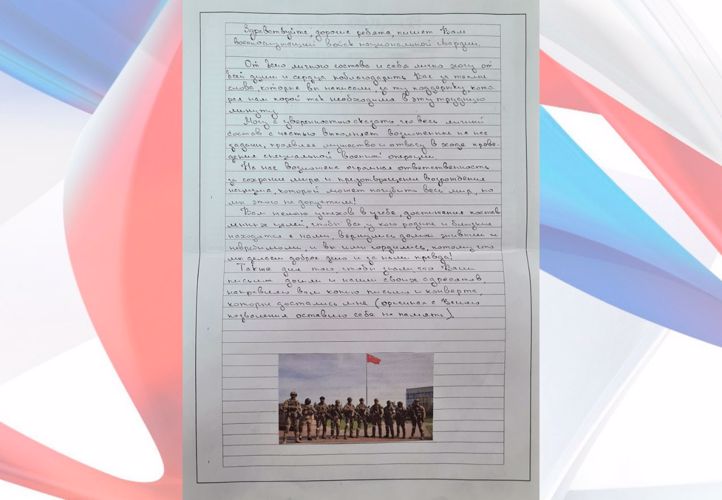 Здравствуйте, дорогие ребята, пишет Вам
военнослужащий войск национальной гвардии.
От всего личного состава и себя лично хочу от
всей души и сердца поблагодарить Вас за теплые
слова, которые вы написали, за ту поддержку, кото
рая нам порой так необходима в эту трудную
минуту.
Могу с уверенностью сказать что весь личный
состав с честью выполняет возложенные на нас
задачи, проявляя мужество и отвагу в ходе прове-
дения специальной военной операции.
На нас возложена огромная ответственность
за сохрание мира и предотвращении возрождения
нацизма, который может погубить весь мир, но
мы этого не допустим!
Вам желаю успехов в учебе, достижения постав
ленных целей, чтобы все у кого родные и близкие
находятся с нами, вернулись домой живыми и
невредимыми, и вы ими гордились, потому что
мы делаем доброе дело и за нами правда!
Также для того, чтобы знали что Ваши
письма дошли и нашли своих адресатов,
направляем вам копию письма и конверта,
которые достались мне (оригинал с Вашего
позволения оставлю себе на память).